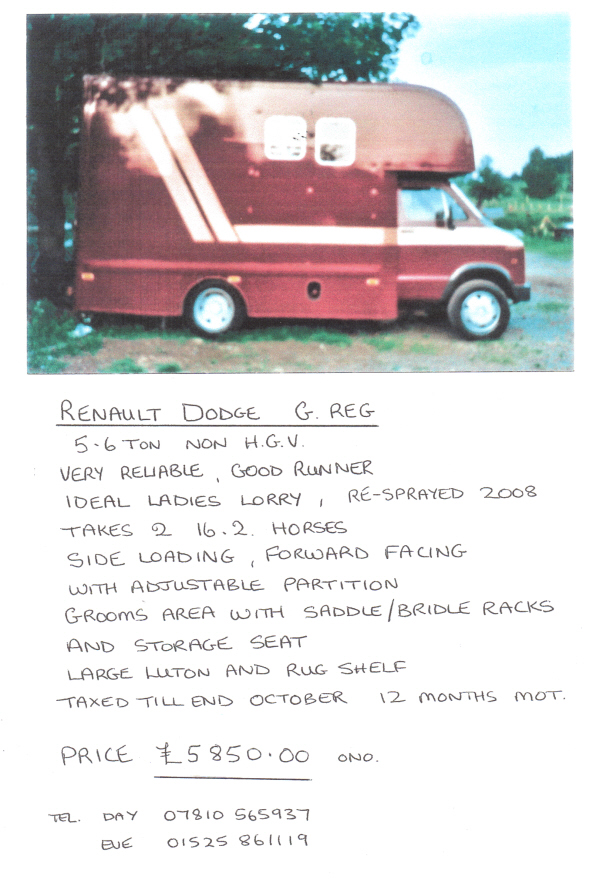 RENAULT DODGE G. REG
5.6 TON NON H.G.V.
VERY RELIABLE, GOOD RUNNER
IDEAL LADIES LORRY, RE-SPRAYED 2008
TAKES 2 16.2. HORSES
SIDE LOADING, FORWARD FACING
WITH ADJUSTABLE PARTITION
GROOMS AREA WITH SADDLE/BRIDLE RACKS
AND STORAGE SEAT
LARGE LUTON AND RUG SHELF
TAXED TILL END OCTOBER 12 MONTHS MOT.
PRICE £5850.00 ONO.
TEL. DAY 07810 565937
EVE 01525 861119